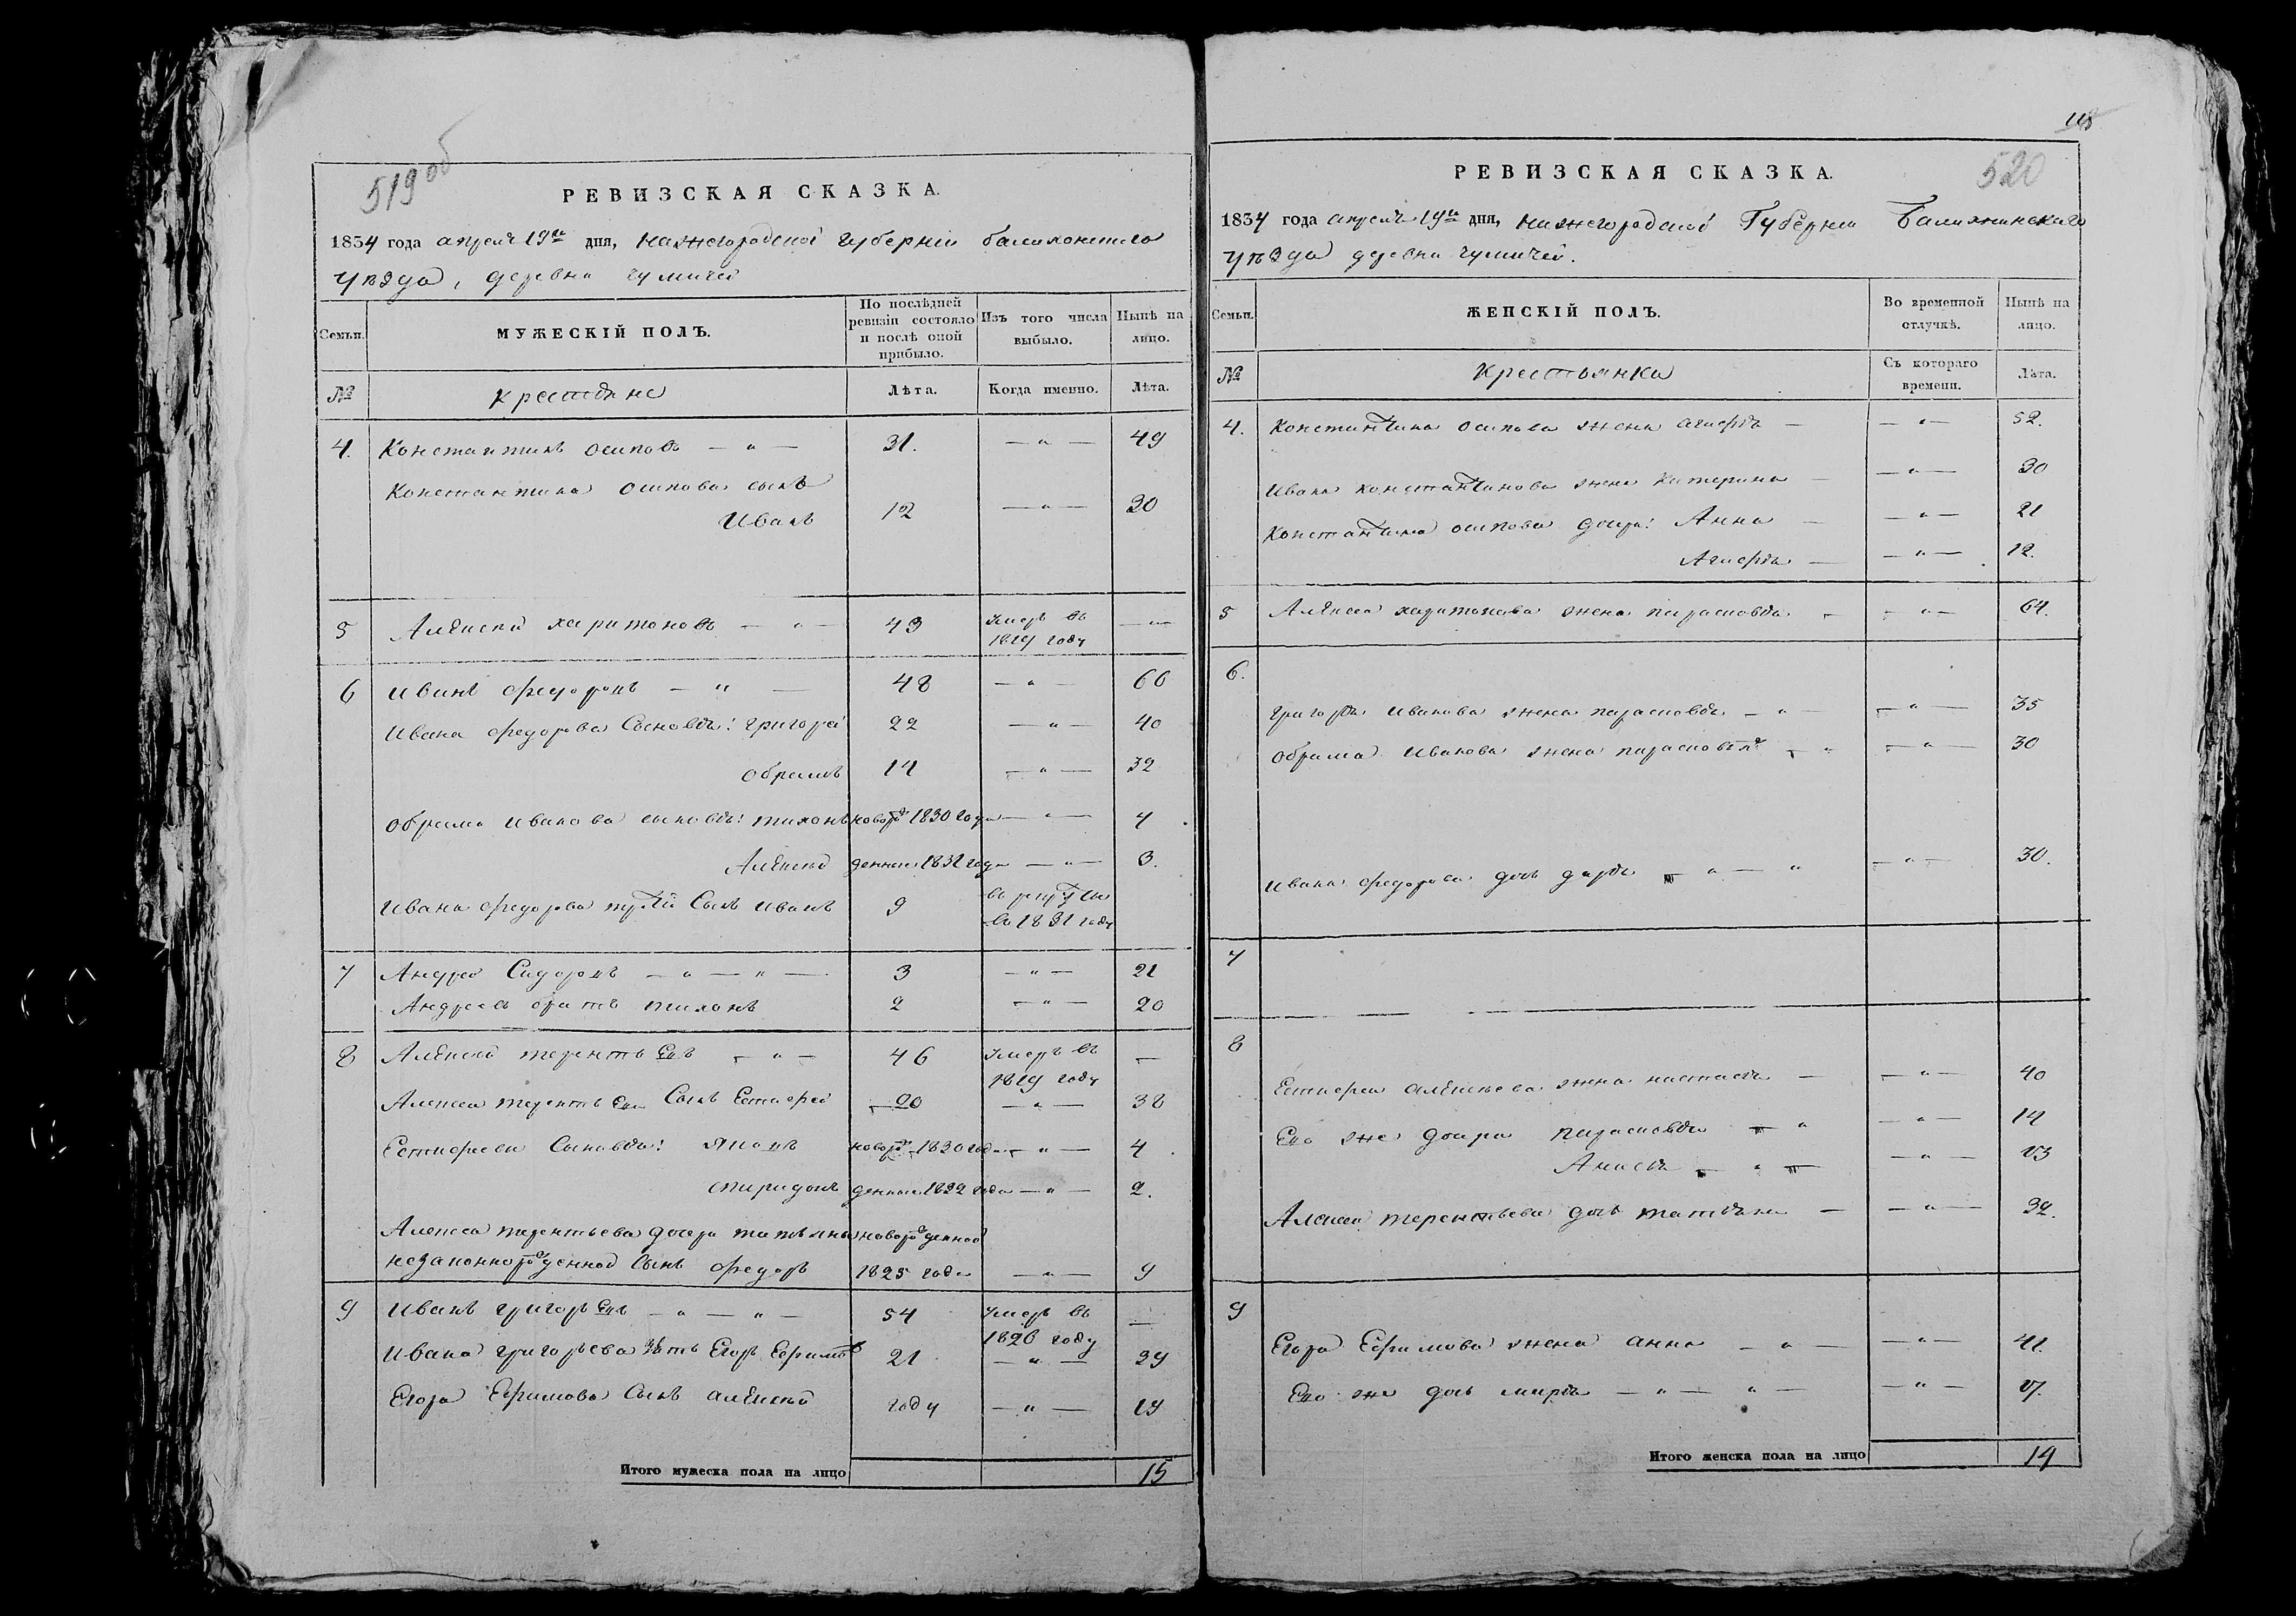 519 об
РЕВИЗСКАЯ СКАЗКА.
1834 года апреля 19го дня, нижегородской губернии балахонского
уѣзда, деревни
Семьи.
МУЖЕСКІЙ ПОЛЪ.
По послѣдней ревизіи состояло и послѣ оной прибыло.
Изъ того числа выбыло.
Нынѣ на лицо.
№
крестьяне
Лѣта.
Когда именно.
Лѣта.
4. Константинъ осиповъ — " — 31. — " — 49
Константина осипова сынъ
Иванъ 12 — " — 30
5 Алексей харитоновъ — " — 43 Умеръ въ — " —
1819 году
6 иванъ федоровъ — " — 48 — " — 66
ивана федорова Сыновья: григорей 22 — " — 40
обрамъ 14 — " — 32
обрама иванова сыновья: тихонъ новоро 1830 года — " — 4
Алексей денные 1831 года — " — 3.
ивана федорова третій Сынъ иванъ 9 въ рекруты
въ 1831 году
7 Андрей Сидоровъ — " — " — 3 — " — 21
Андреевъ братъ тихонъ 2 — " — 20
8 Алексей терентьевъ — " — 46 Умеръ въ —
1819 году
Алексея терентьева Сынъ Естифей 20 — " — 38
Естифеева Сыновья: яковъ новоро 1830 года — " — 4
спиридонъ денные 1832 года — " — 2.
Алексея терентьева дочери татьяны новорожденной
незаконнорожденной Сынъ федоръ 1825 года — " — 9
9 Иванъ григорьевъ — " — " — 54 Умеръ въ —
1826 году
ивана григорьева зять Егоръ Ефимовъ 21 — " — 39
Егора Ефимова Сынъ алексей году — " — 19
Итого мужеска пола на лицо 15
118
520
РЕВИЗСКАЯ СКАЗКА.
1834 года апреля 19го дня, нижегородской Губернии Балахнинскаго
уѣзда деревни
Семьи.
ЖЕНСКІЙ ПОЛЪ.
Во временной отлучкѣ.
Нынѣ на лицо.
№
Крестьянки
Съ котораго времени.
Лѣта.
4. Константина осипова жена — — " — 52.
Ивана константинова жена катерина — — " — 30
Константина осипова дочери: Анна — — " — 21
— — " — 12.
5 Алексея харитонова жена парасковья — — " — 64.
6.
григорья иванова жена парасковья — " — — " — 35
обрама иванова жена парасковья — " — " — 30
ивана федорова дочь дарья — " — " — " — 30.
7
8
Естифея алексеева жена настасья — — " — 40
Его же дочери парасковья — " — " — 14
Анисья — " — — " — 13
Алексея терентьева дочь татьяна — — " — 32.
9
Егора Ефимова жена анна — " — — " — 41.
Его же дочь марья — " — " — — " — 17.
Итого женска пола на лицо 14